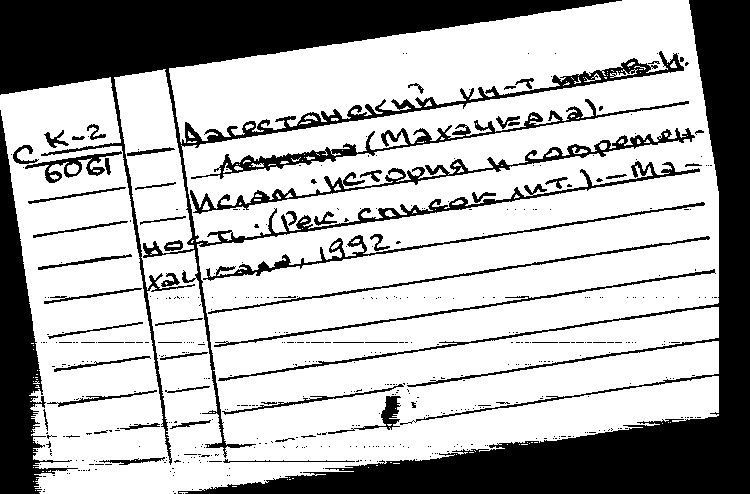 С К-2
6061
Дагестанский ун-т им. В.И.
Ленина (Махачкала).
Ислам: история и современ-
ность: (Рек. список лит.). — Ма-
хачкала, 1992.